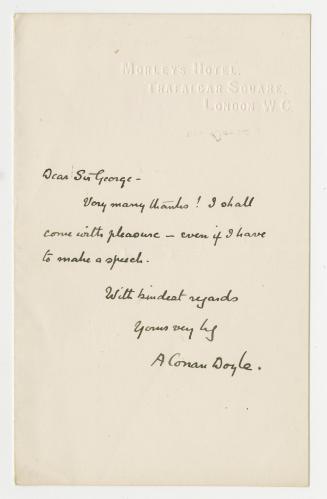 MORLEY'S HOTEL,
TRAFALGAR SQUARE,
LONDON W.C.
Dear Sir George -
Very many thanks! I shall
come with pleasure - even if I have
to make a speech.
With kindest regards
Yours very
A Conan Doyle.